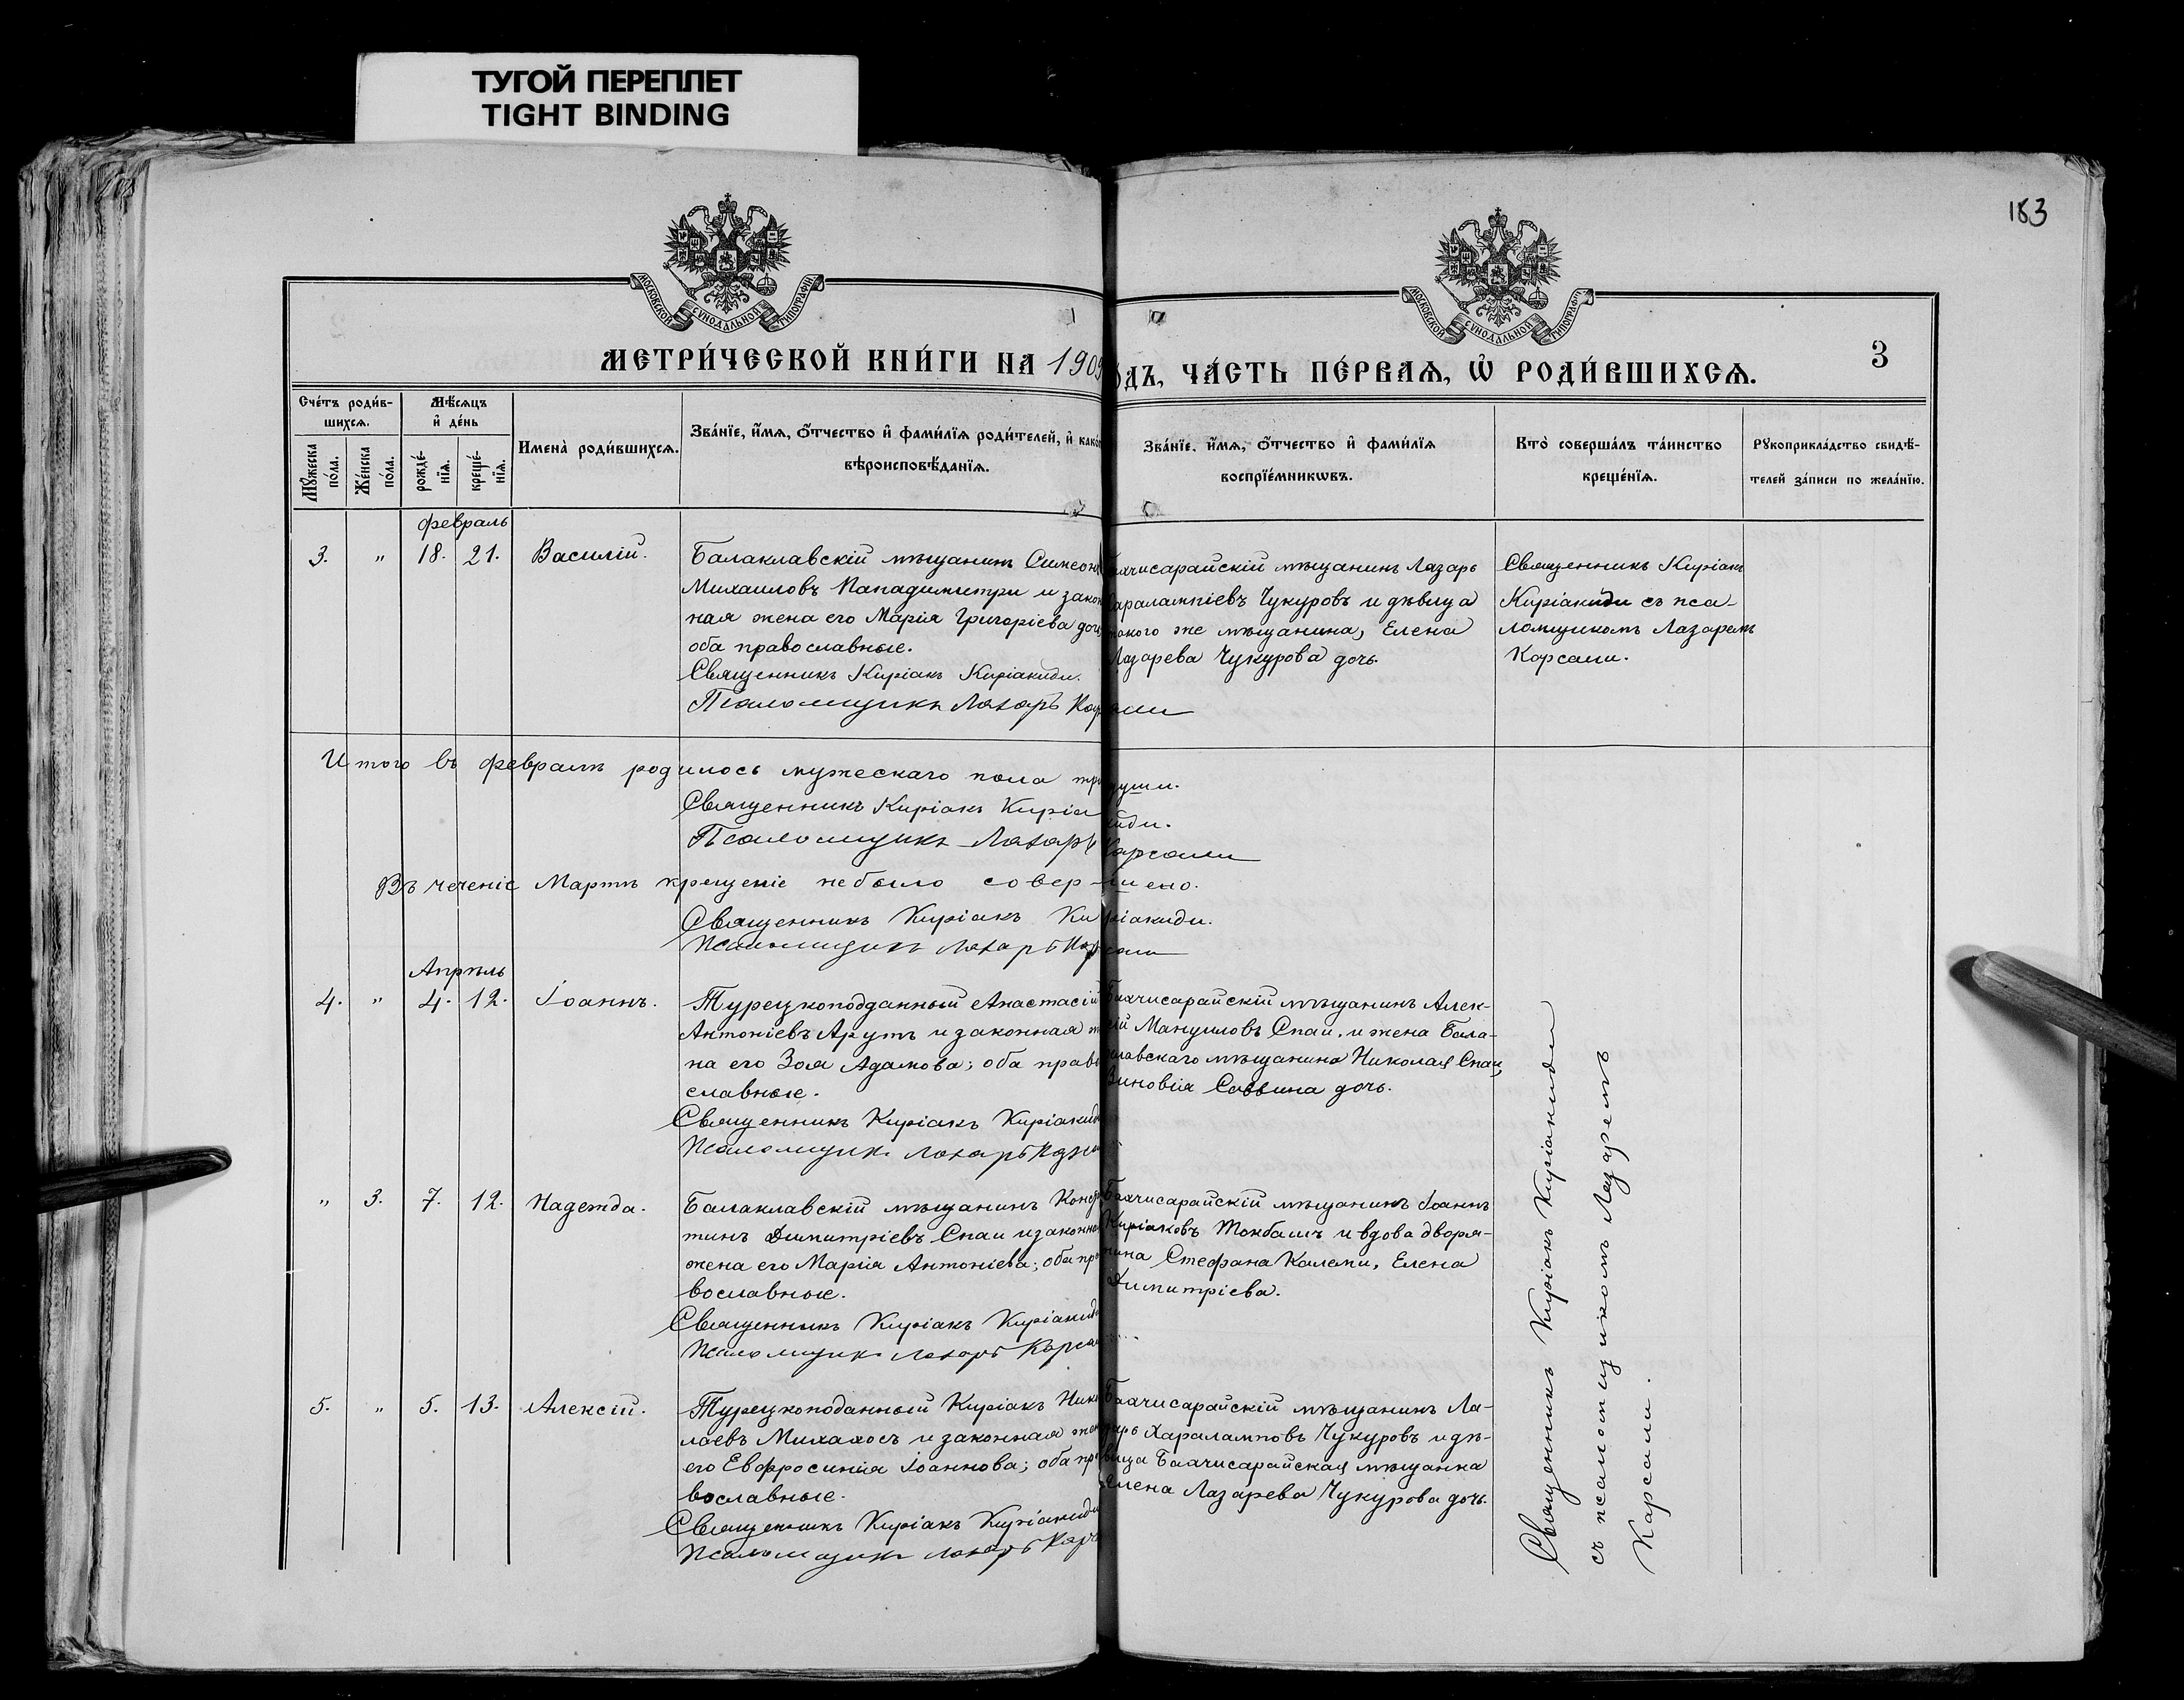 ТУГОЙ ПЕРЕПЛЕТ
TIGHT BINDING
183
МОСКОВСКОЙ СѴНОДАЛЬНОЙ ТИПОГРАФІИ
МОСКОВСКОЙ СѴНОДАЛЬНОЙ ТИПОГРАФІИ
3
МЕТРИ́ЧЕСКОЙ КНИ́ГИ НА 1909
ОДЪ, ЧА́СТЬ ПЕ́РВАѦ, Ѡ҆ РОДИ́ВШИХСѦ.
Сче́тъ роди́в-
шихсѧ.
Мꙋ́жеска по́ла.
Же́нска по́ла.
Мѣ́сѧцъ
и҆ де́нь
рожде́-нїѧ.
креще́-нїѧ.
Имена̀ роди́вшихсѧ.
Зва́нїе, и҆́мѧ, ѻ҆́тчество и҆ фами́лїѧ роди́телей, и҆ како
вѣроисповѣ́данїѧ.
Зва́нїе, и҆́мѧ, ѻ҆́тчество и҆ фами́лїѧ
воспрїе́мникѡвъ.
Кто̀ соверша́лъ та́инство
креще́нїѧ.
Рꙋкоприкла́дство свидѣ́-
телей за́писи по жела́нїю.
февраль
3. " 18. 21. Василій.
Балаклавскій мѣщанинъ Симеонъ
Михаиловъ Пападимитри и закон
ная жена его Марія Григоріева дочь
оба православные.
Священникъ Киріакъ Киріакиди.
Псаломщикъ Лазарь Карсами
Бахчисарайскій мѣщанинъ Лазарь
Харалампіевъ Чукуровъ и дѣвица
такого же мѣщанина, Елена
Лазарева Чукурова дочь.
Священникъ Киріакъ
Киріакиди съ пса-
ломщикомъ Лазаремъ
Карсами.
Итого въ февралѣ родилось мужескаго пола три души.
Священникъ Киріакъ Киріакиди.
Псаломщикъ Лазарь Карсами
Въ теченіе Марта крещеніе небыло совершено.
Священникъ Киріакъ Киріакиди.
Псаломщикъ Лазарь Карсами
Апрѣль
4. " 4. 12. Іоаннъ.
Турецкоподданный Анастасій
Антоніевъ Арутъ и законная ж
на его Зоя Адамова; оба право
славные.
Священникъ Киріакъ Киріакиди
Псаломщикъ Лазарь Карсами
Бахчисарайскій мѣщанинъ Алек-
сій Мануиловъ Спаи, и жена Бала-
клавскаго мѣщанина Николая Спаи,
Зиновія Саввина дочь.
" 3. 7. 12. Надежда.
Балаклавскій мѣщанинъ Конст
тинъ Димитріевъ Спаи и законна
жена его Марія Антоніева; оба пра
вославные.
Священникъ Киріакъ Киріакиди
Псаломщикъ Лазарь Карсами
Бахчисарайскій мѣщанинъ Іоаннъ
Киріаковъ Токбашъ и вдова дворя-
нина Стефана Калеми, Елена
Димитріева.
5. " 5. 13. Алексій.
Турецкоподаный Киріакъ Нико
лаевъ Михахосъ и законная жен
его Евфросинія Іоаннова; оба пра
вославные.
Священникъ Киріакъ Киріакиди
Псаломщикъ Лазарь Карса
Бахчисарайскій мѣщанинъ Ла-
зарь Хараламповъ Чукуровъ и дѣ-
вица Бахчисарайская мѣщанка
Елена Лазарева Чукурова дочь.
Священникъ Киріакъ Киріакиди
съ псаломщикомъ Лазаремъ
Карсами.